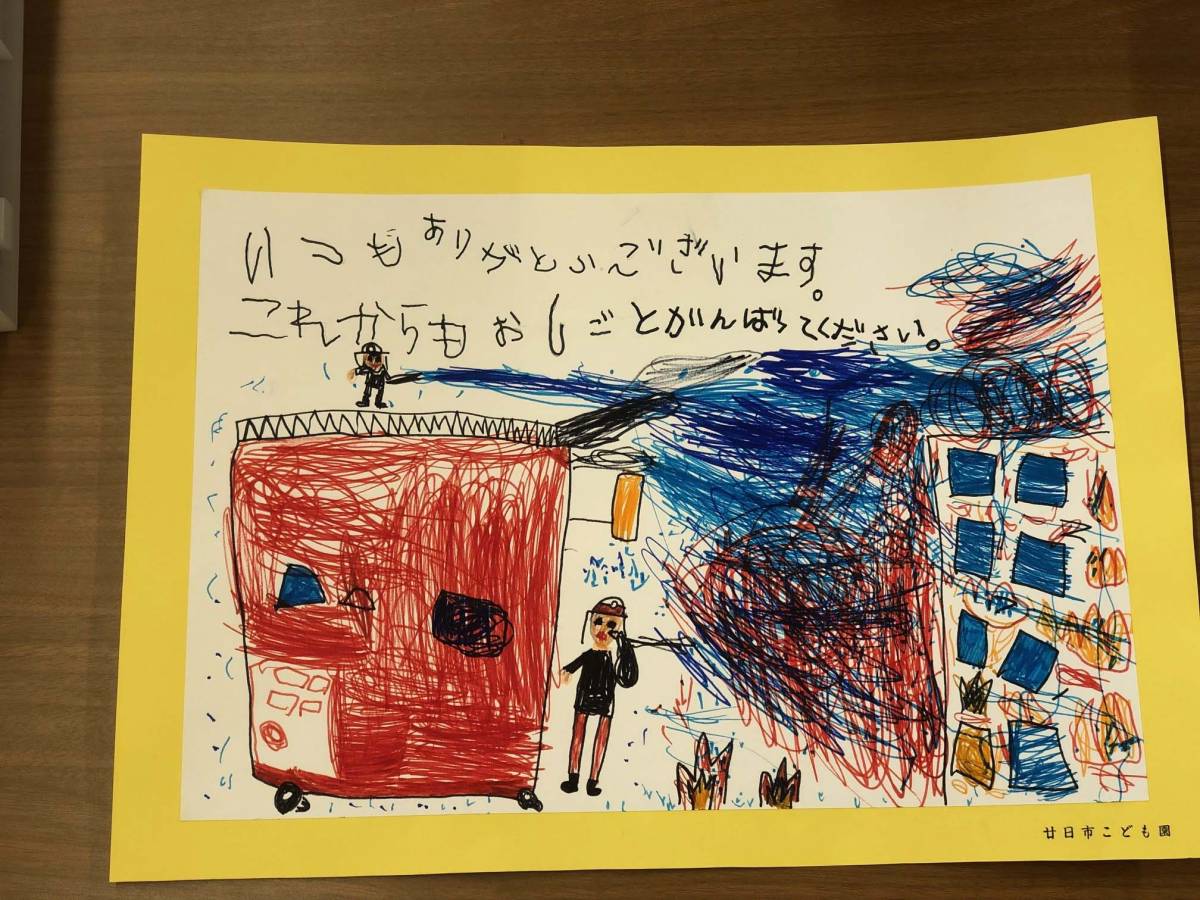 いつもありがとうございます。
これからもおしごとがんばってください。
廿日市こども園